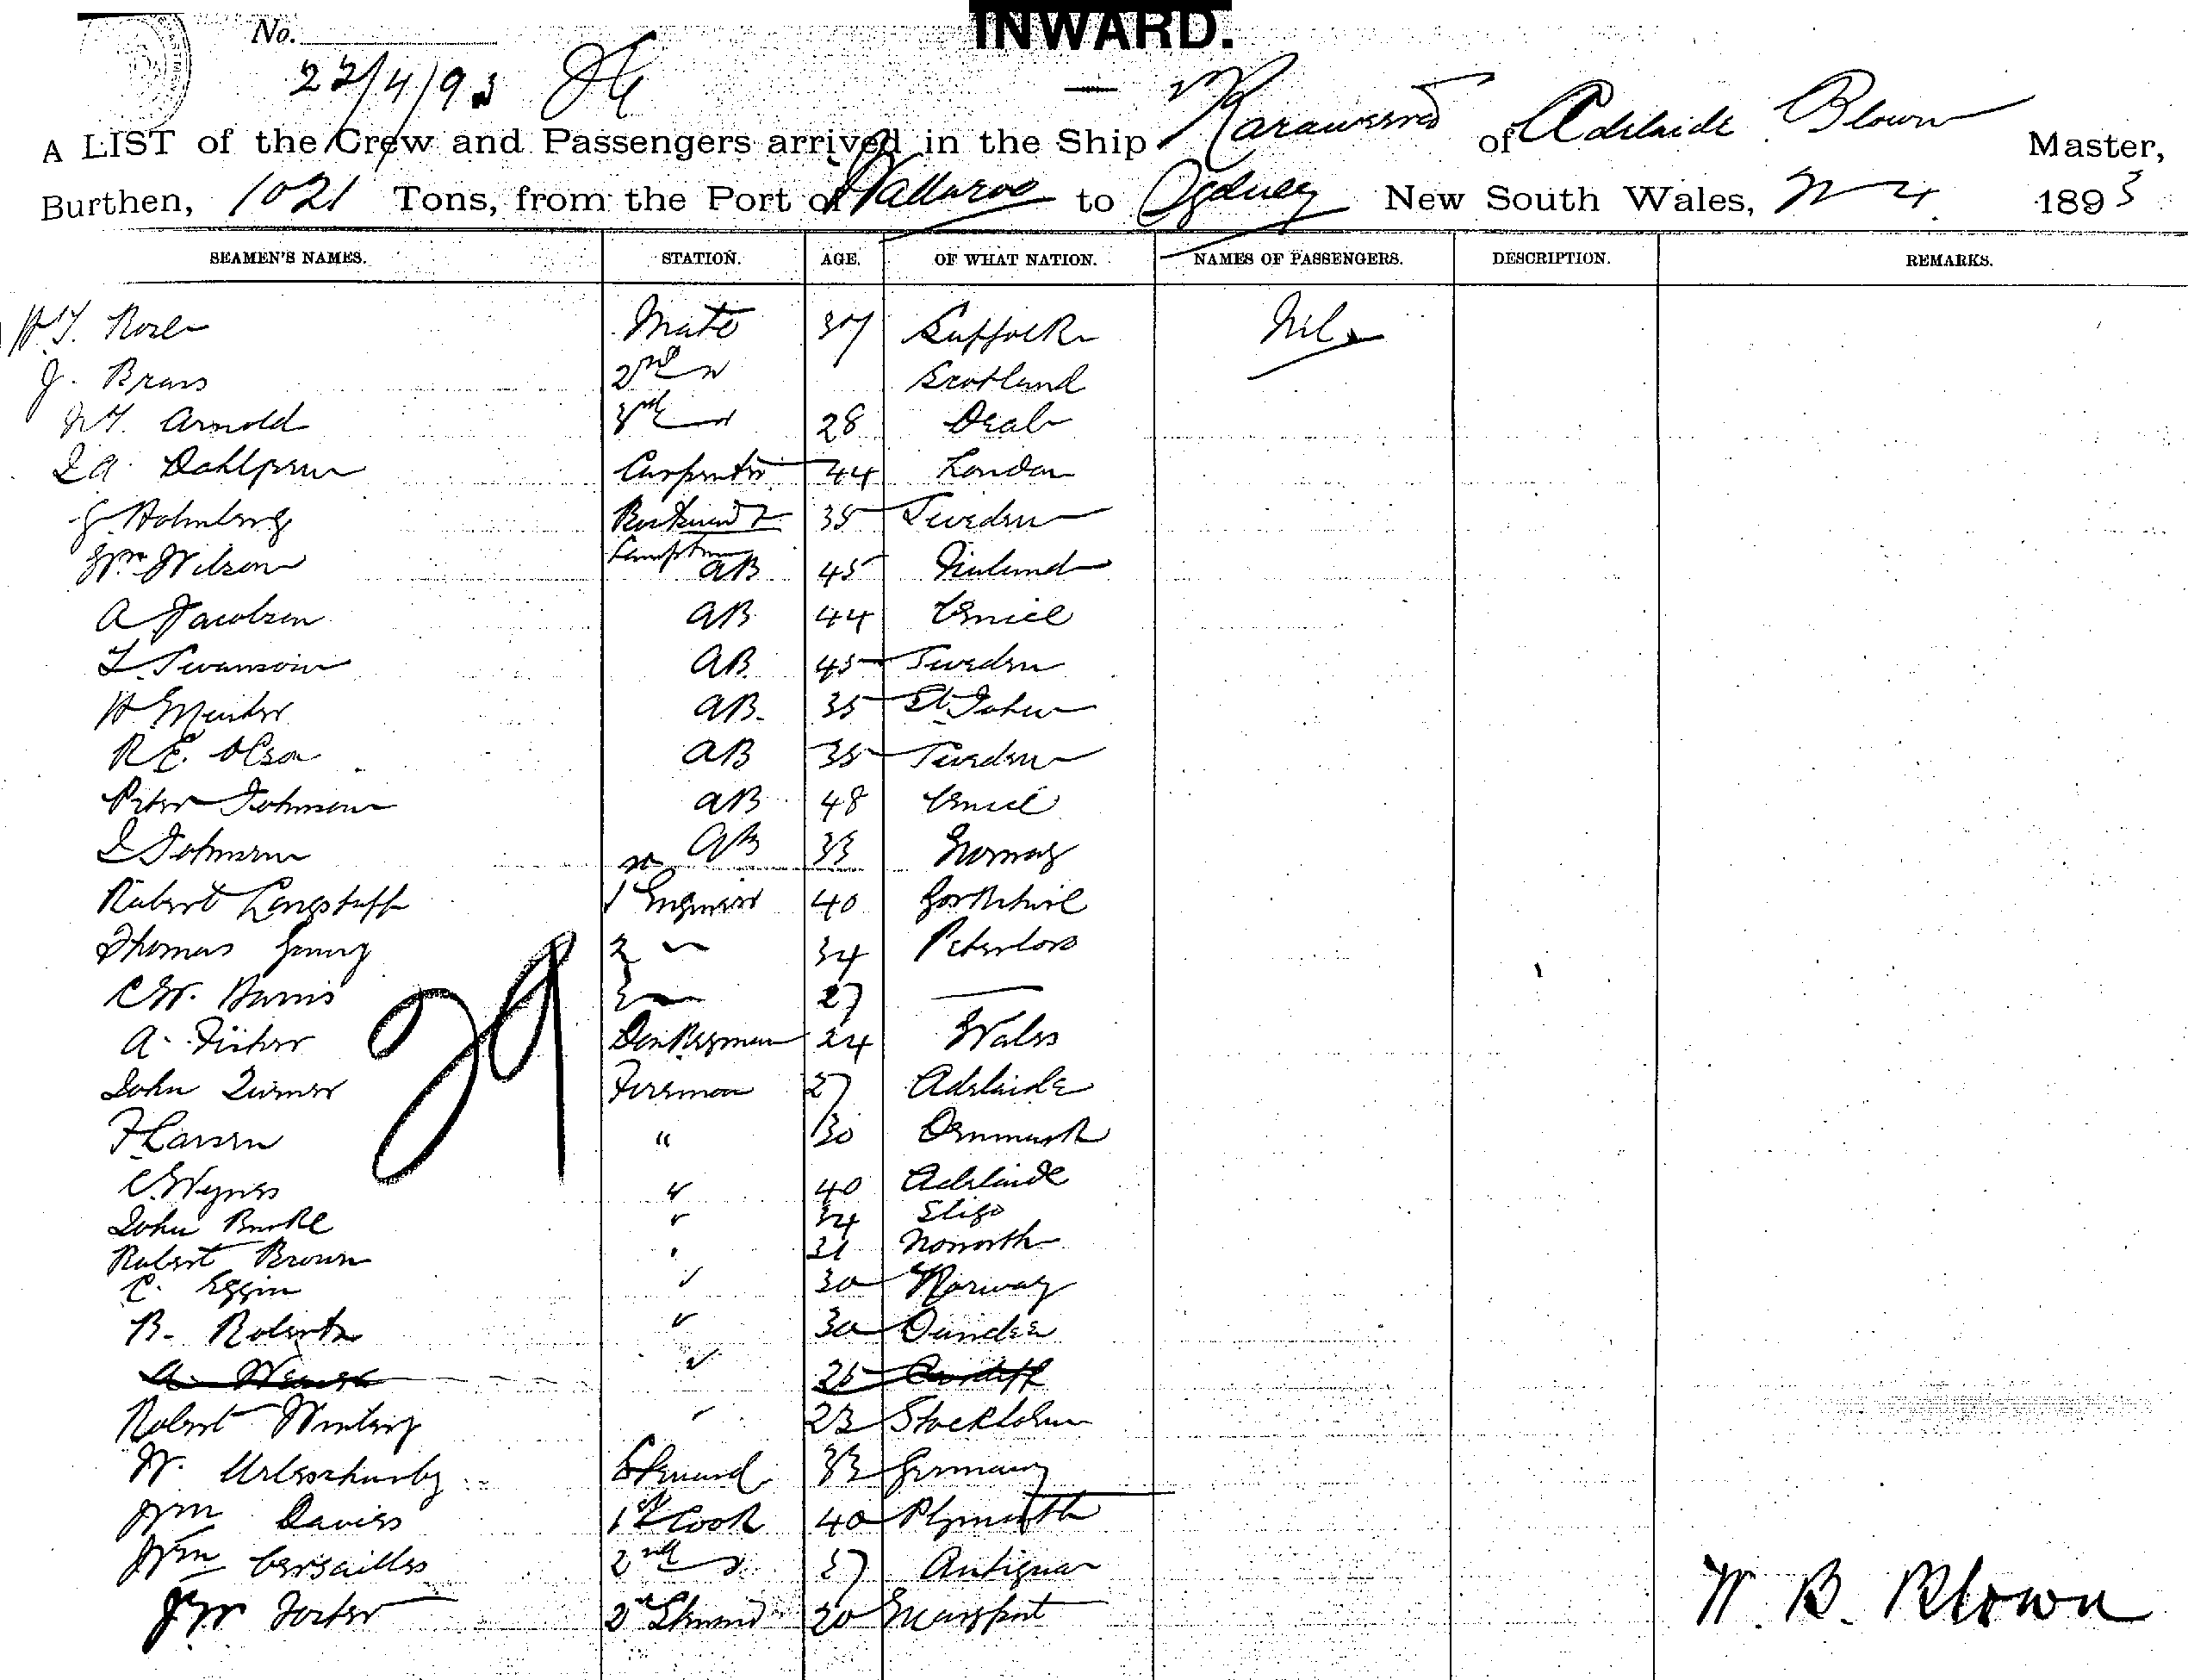 INWARD.
No.
22/4/93
A LIST of the Crew and Passengers arrived in the Ship Karaweera of Adelaide Blown Master,
Burthen, 1021 Tons, from the Port of Wallaroo to Sydney New South Wales, 22 4 1893
SEAMEN'S NAMES. STATION. AGE. OF WHAT NATION. NAMES OF PASSENGERS. DESCRIPTION. REMARKS.
Mate 37 Suffolk Nil
J. Brass 2nd " Scotland
Arnold 3rd " 28 Deal
Carpenter 44 London
Holmberg 35 Sweden
Wm Wilson Lamptrimmer AB 45 Finland
A Jacobsen AB 44 Venice
Swanson AB 45 Sweden
AB. 35 St John
R E. Olson AB 35 Sweden
Peter Johnson AB 48 Venice
Johnson AB 33 Norway
Robert Langstaff 1 Engineer 40 Yorkshire
Thomas Young 2 " 34 Peterboro
29
C W. 3 " 27
A. Fisher Donkeyman 24 Wales
John Turner Fireman 27 Adelaide
F Larsen " 30 Denmark
C. Wynes " 40 Adelaide
John Burke " 34 Sligo
Robert Brown " 31
C. Eggin " 30 Norway
R. Roberts " 30 Dundee
A. " 26 Cardiff
Robert " 23 Stockholm
W. Steward 33 Germany
Wm Davies 1st Cook 40 Plymouth
Wm Versailles 2nd " 37 Antigua
Wm Foster 2nd Steward 20 Maryport
W. B. Blown